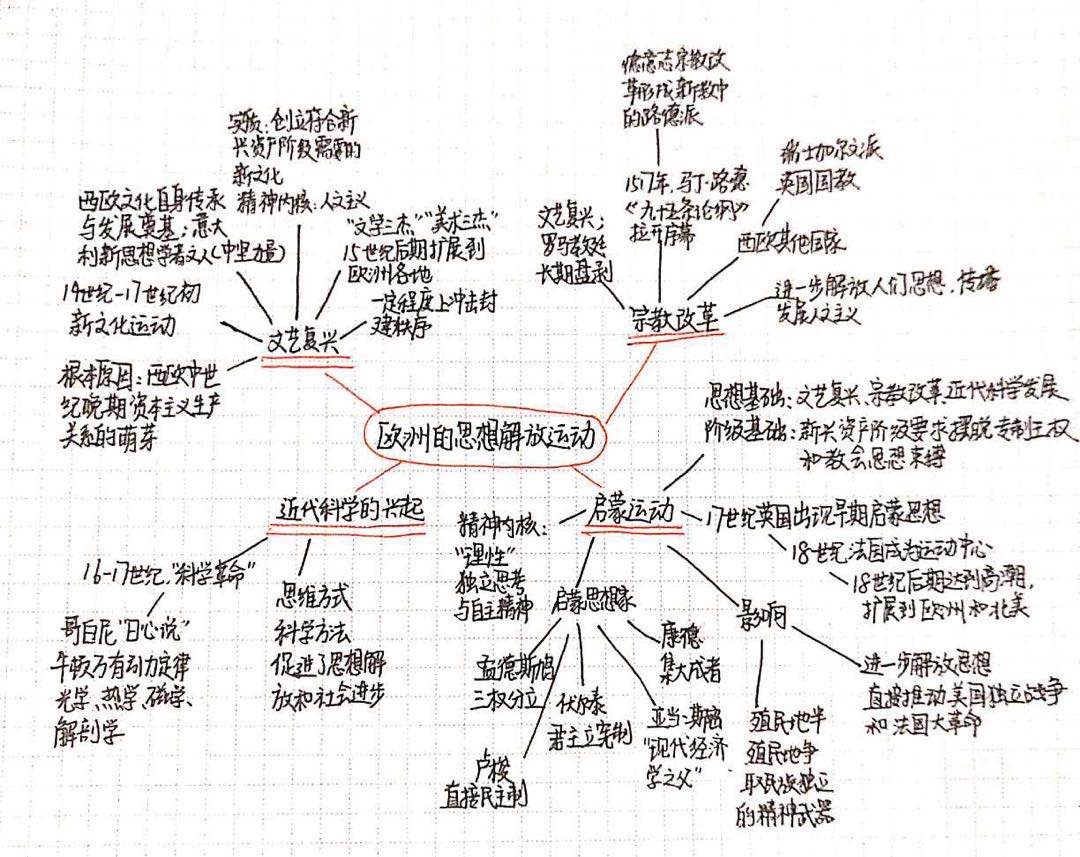 欧洲的思想解放运动
文艺复兴
实质:创立符合新
兴资产阶级需要的
新文化
精神内核:人文主义
西欧文化自身传承
与发展奠基;意大
利新思想学者文人(中坚力量)
14世纪-17世纪初
新文化运动
根本原因:西欧中世
纪晚期资本主义生产
关系的萌芽
"文学三杰""美术三杰"
15世纪后期扩展到
欧洲各地
一定程度上冲击封
建秩序
宗教改革
文艺复兴;
罗马教廷
长期盘剥
德意志宗教改
革形成新教中
的路德派
1517年,马丁·路德
《九十五条论纲》
拉开序幕
瑞士加尔文派
英国国教
西欧其他国家
进一步解放人们思想,传播
发展人文主义
近代科学的兴起
16-17世纪"科学革命"
哥白尼"日心说"
牛顿万有引力定律
光学、热学、磁学、
解剖学
思维方式
科学方法
促进了思想解
放和社会进步
启蒙运动
思想基础:文艺复兴、宗教改革、近代科学发展
阶级基础:新兴资产阶级要求摆脱专制王权
和教会思想束缚
17世纪英国出现早期启蒙思想
18世纪法国成为运动中心
18世纪后期达到高潮,
扩展到欧洲和北美
精神内核:
"理性"
独立思考
与自主精神
启蒙思想家
孟德斯鸠
三权分立
卢梭
直接民主制
伏尔泰
君主立宪制
亚当·斯密
"现代经济
学之父"
康德
集大成者
影响
殖民地半
殖民地争
取民族独立
的精神武器
进一步解放思想
直接推动美国独立战争
和法国大革命